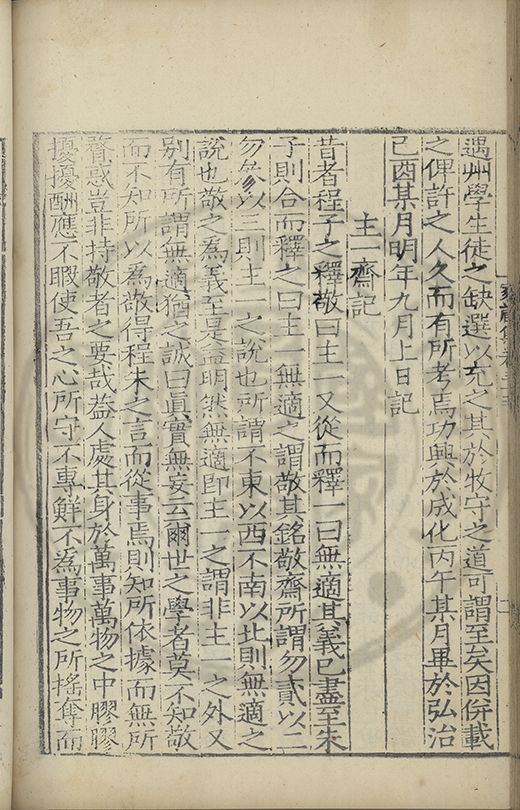 遇州學生徒之缺選以充之其於牧守之道可謂至矣因併載
之俾許之人久而有所考焉功興於成化丙午某月畢於弘治
己酉某月明年九月上日記
主一齋記
昔者程子之釋敬曰主一又從而釋一曰無適其義已盡至朱
子則合而釋之曰主一無適之謂敬其銘敬齋所謂勿貳以二
勿參以三則主一之說也所謂不東以西不南以北則無適之
說也敬之為義至是益明然無適即主一之謂非主一之外又
別有所謂無適猶之誠曰眞實無妄云爾世之學者莫不知敬
而不知所以為敬得程朱之言而從事焉則知所依據而無所
瞀惑豈非持敬者之要哉葢人處其身於萬事萬物之中膠膠
擾擾酬應不暇使吾之心所守不專鮮不為事物之所搖奪而